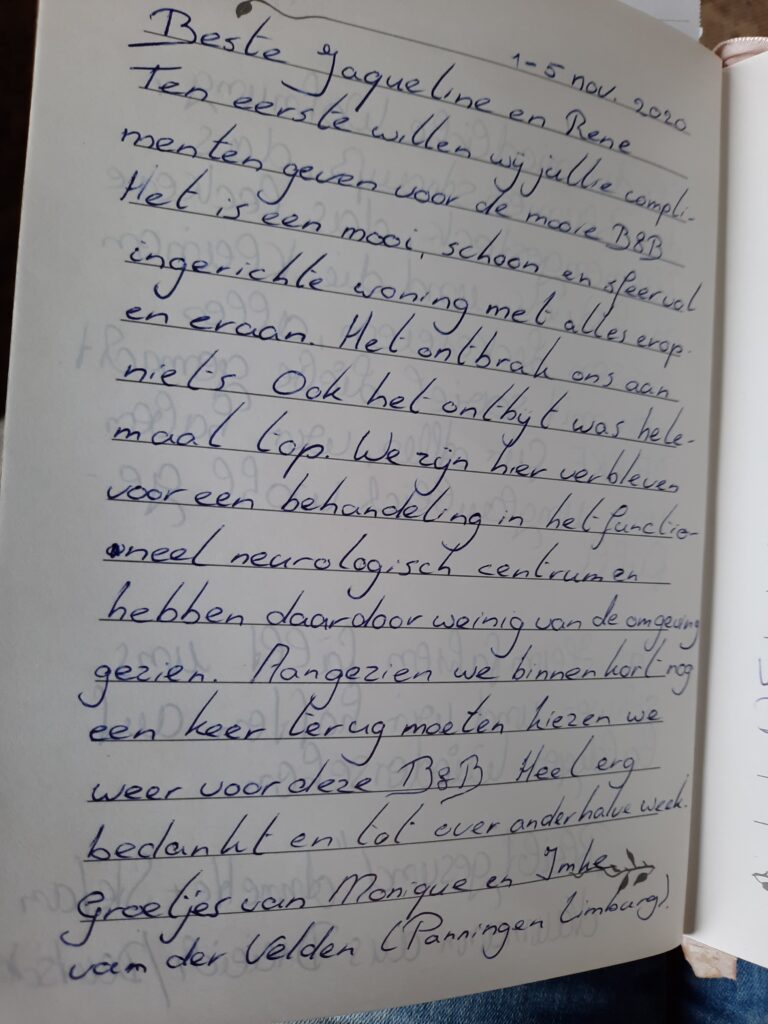 1-5 nov. 2020
Beste Jaqueline en Rene
Ten eerste willen wij jullie compli-
menten geven voor de mooie B&B
Het is een mooi, schoon en sfeervol
ingerichte woning met alles erop
en eraan. Het ontbrak ons aan
niets. Ook het ontbijt was hele-
maal top. We zijn hier verbleven
voor een behandeling in het functio-
neel neurologisch centrum en
hebben daardoor weinig van de omgeving
gezien. Aangezien we binnenkort nog
een keer terug moeten kiezen we
weer voor deze B&B Heel erg
bedankt en tot over anderhalve week.
Groetjes van Monique en Imke
van der Velden (Panningen Limburg).